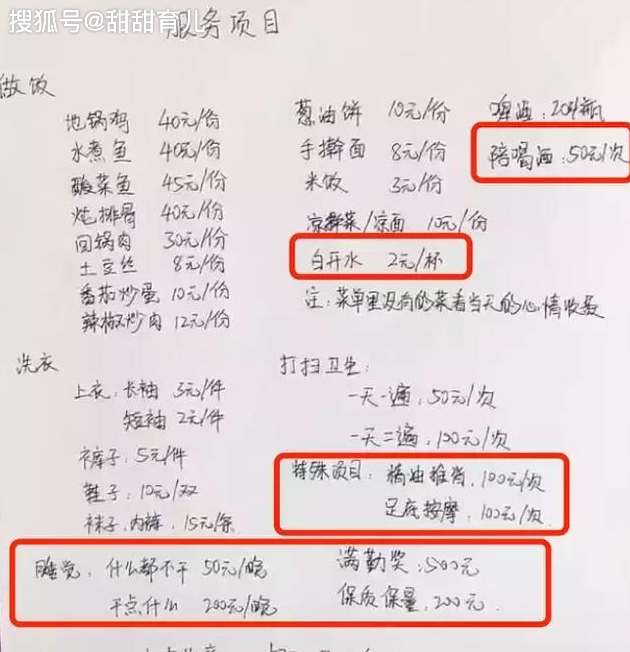 搜狐号@甜甜育儿
服务项目
做饭
地锅鸡 40元/份
水煮鱼 40元/份
酸菜鱼 45元/份
炖排骨 40元/份
回锅肉 30元/份
土豆丝 8元/份
番茄炒蛋 10元/份
辣椒炒肉 12元/份
葱油饼 10元/份
手擀面 8元/份
米饭 3元/份
凉拌菜/凉面 10元/份
白开水 2元/杯
注:菜单里没有的菜看当天的心情收费
啤酒:20元/瓶
陪喝酒:50元/次
洗衣
上衣:长袖 3元/件
短袖 2元/件
裤子:5元/件
鞋子:10元/双
袜子,内裤,15元/条
打扫卫生:
一天一遍,50元/次
一天二遍,100元/次
特殊项目:精油推背,100元/次
足底按摩,100元/次
睡觉,什么都不干 50元/晚
干点什么 200元/晚
满勤奖:500元
保质保量,200元